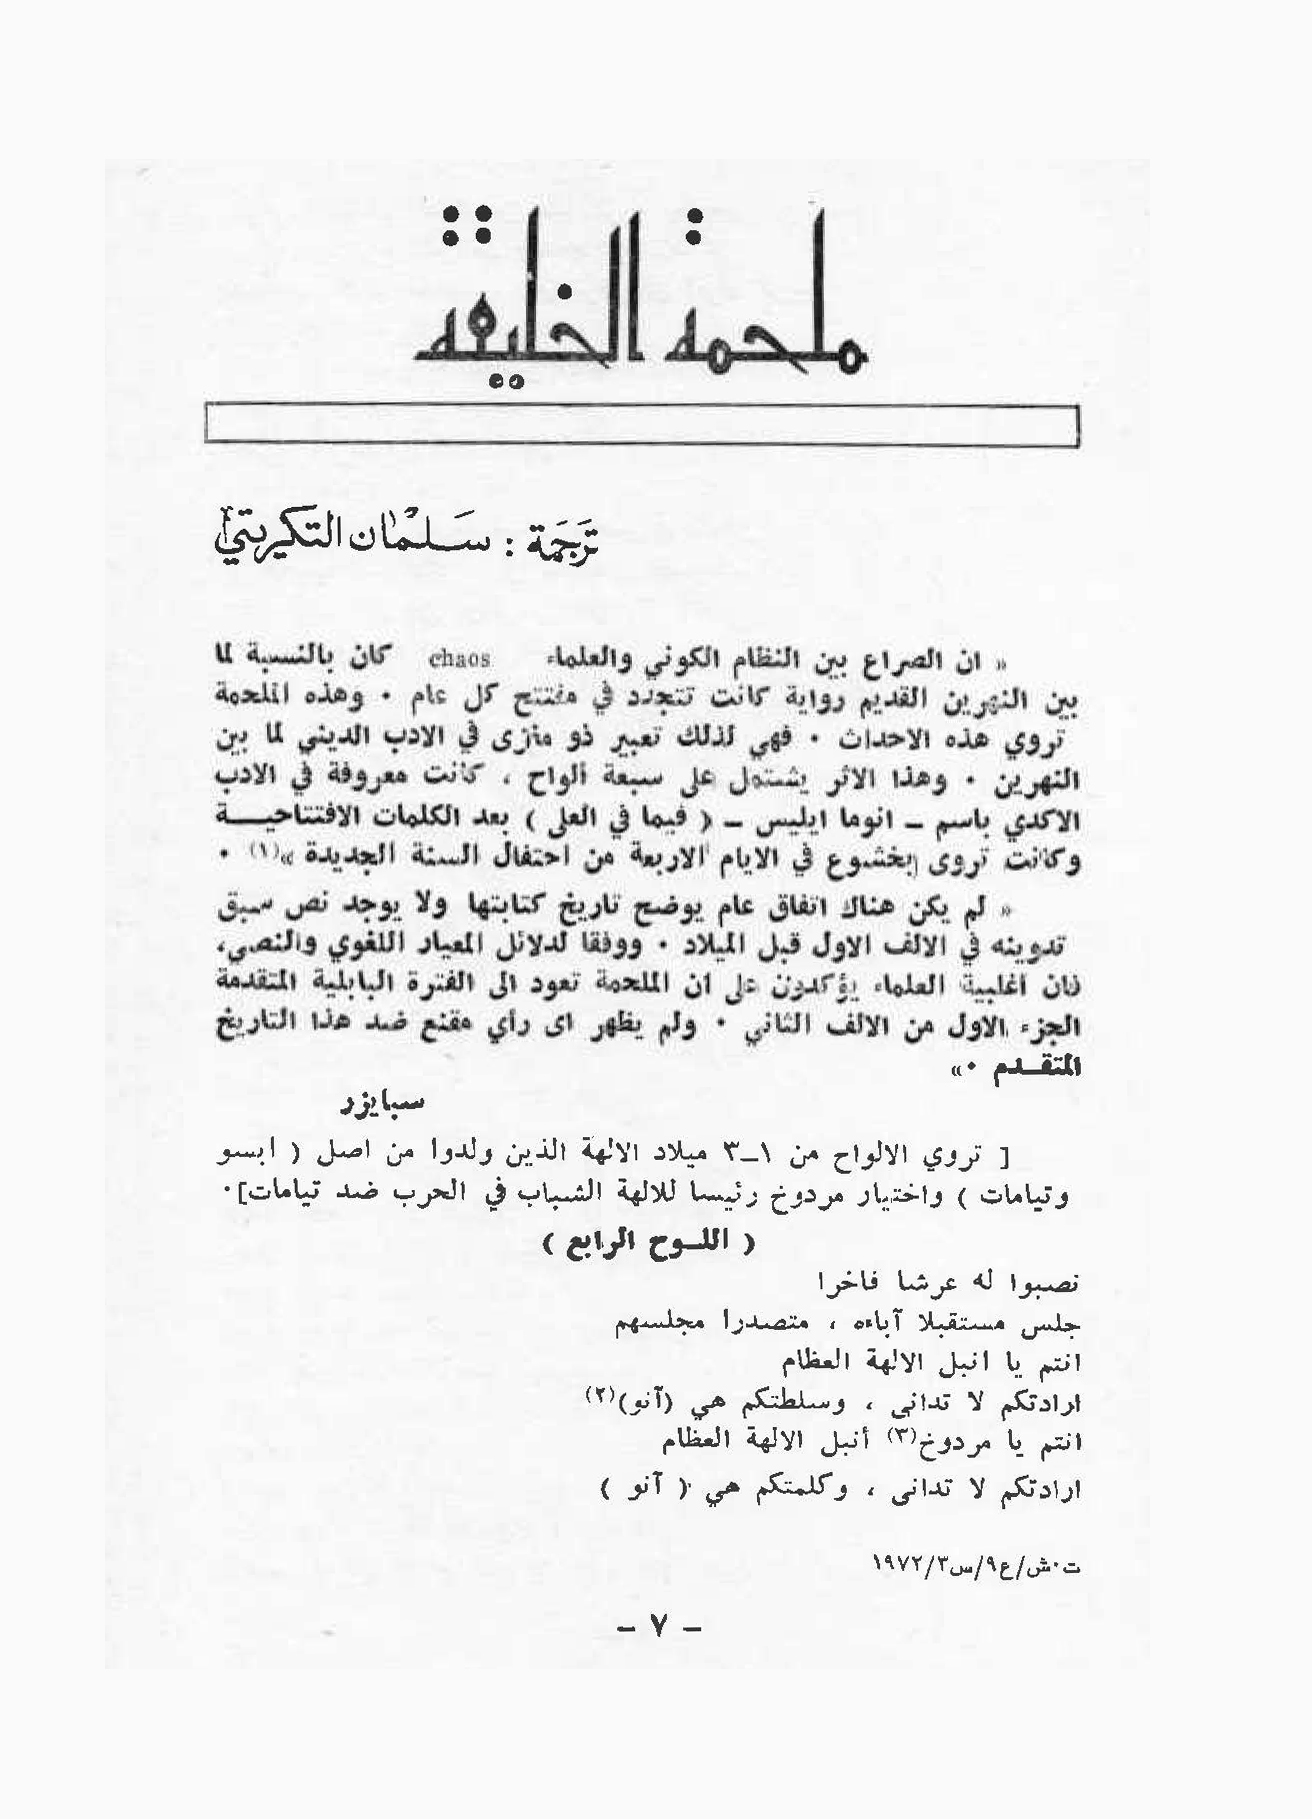 ملحمة الخليقة
ترجمة : سلمان التكريتي
« ان الصراع بين النظام الكوني والعلماء chaos كان بالنسبة لما
بين النهرين القديم رواية كانت تتجدد في مفتتح كل عام ٠ وهذه الملحمة
تروي هذه الاحداث ٠ فهي لذلك تعبير ذو مغزى في الادب الديني لما بين
النهرين ٠ وهذا الاثر يشتمل على سبعة ألواح ، كانت معروفة في الادب
الاكدي باسم – انوما ايليس – ( فيما في العلى ) بعد الكلمات الافتتاحية
وكانت تروى بخشوع في الايام الاربعة من احتفال السنة الجديدة »(١) ٠
« لم يكن هناك اتفاق عام يوضح تاريخ كتابتها ولا يوجد نص سبق
تدوينه في الالف الاول قبل الميلاد ٠ ووفقا لدلائل المعيار اللغوي والنصي،
فان أغلبية العلماء يؤكدون على ان الملحمة تعود الى الفترة البابلية المتقدمة
الجزء الاول من الالف الثاني ٠ ولم يظهر اى رأي مقنع ضد هذا التاريخ
المتقدم ٠»
سبايزر
[ تروي الالواح من ١–٣ ميلاد الالهة الذين ولدوا من اصل ( ابسو
وتيامات ) واختيار مردوخ رئيسا للالهة الشباب في الحرب ضد تيامات]٠
( اللوح الرابع )
نصبوا له عرشا فاخرا
جلس مستقبلا آباءه ، متصدرا مجلسهم
انتم يا انبل الالهة العظام
ارادتكم لا تدانى ، وسلطتكم هي (آنو)(٢)
انتم يا مردوخ(٣) أنبل الالهة العظام
ارادتكم لا تدانى ، وكلمتكم هي ( آنو )
ت٠ش/ع٩/س٣/١٩٧٢
– ٧ –